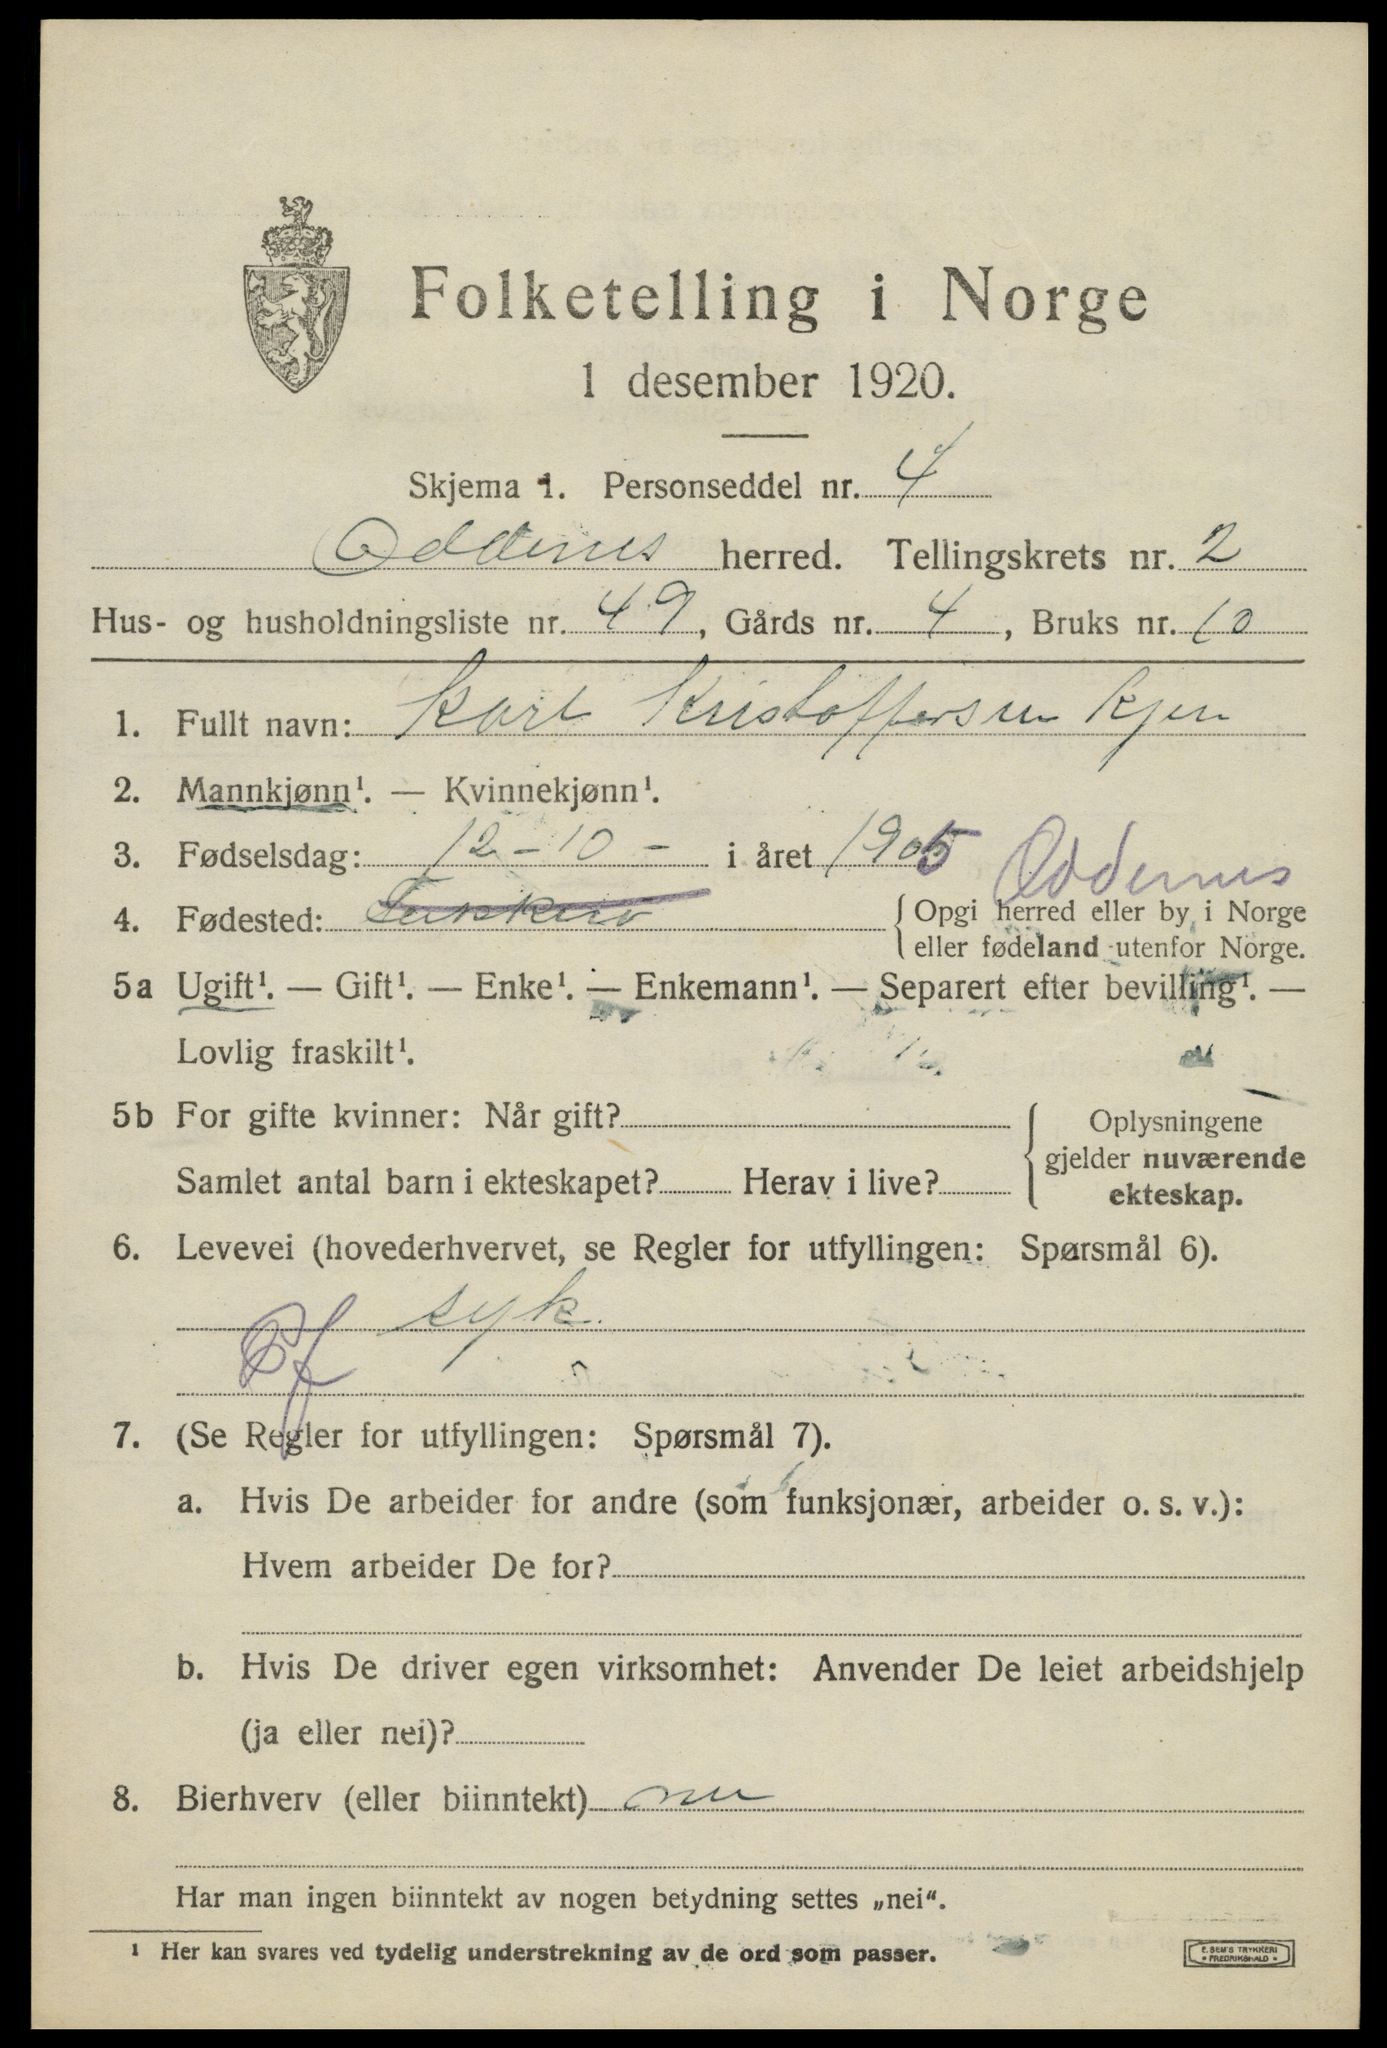 Folketelling i Norge
1 desember 1920.
Skjema 1. Personseddel nr. 4
Oddernes herred. Tellingskrets nr. 2
Hus- og husholdningsliste nr. 49, Gårds nr. 4, Bruks nr. 10
1. Fullt navn: Karl Kristoffersen Kjen
2. Mannkjønn¹. — Kvinnekjønn¹.
3. Fødselsdag: 12-10- i året 1905 Oddernes
4. Fødested: {Opgi herred eller by i Norge
eller fødeland utenfor Norge.
5a Ugift¹. — Gift¹. — Enke¹. — Enkemann¹. — Separert efter bevilling¹. —
Lovlig fraskilt¹.
5b For gifte kvinner: Når gift?
Samlet antal barn i ekteskapet? Herav i live?
{Oplysningene
gjelder nuværende
ekteskap.
6. Levevei (hovederhvervet, se Regler for utfyllingen: Spørsmål 6).
syk.
7. (Se Regler for utfyllingen: Spørsmål 7).
a. Hvis De arbeider for andre (som funksjonær, arbeider o. s. v.):
Hvem arbeider De for?
b. Hvis De driver egen virksomhet: Anvender De leiet arbeidshjelp
(ja eller nei)?
8. Bierhverv (eller biinntekt) nei
Har man ingen biinntekt av nogen betydning settes „nei“.
¹ Her kan svares ved tydelig understrekning av de ord som passer.
E. SEM'S TRYKKERI
• FREDRIKSHALD •